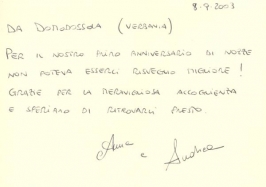 8-7-2003
DA DOMODOSSOLA (VERBANIA)
PER IL NOSTRO PRIMO ANNIVERSARIO DI NOZZE
NON POTEVA ESSERCI RISVEGLIO MIGLIORE!
GRAZIE PER LA MERAVIGLIOSA ACCOGLIENZA
E SPERIAMO DI RITROVARCI PRESTO.
Anna
e Andrea